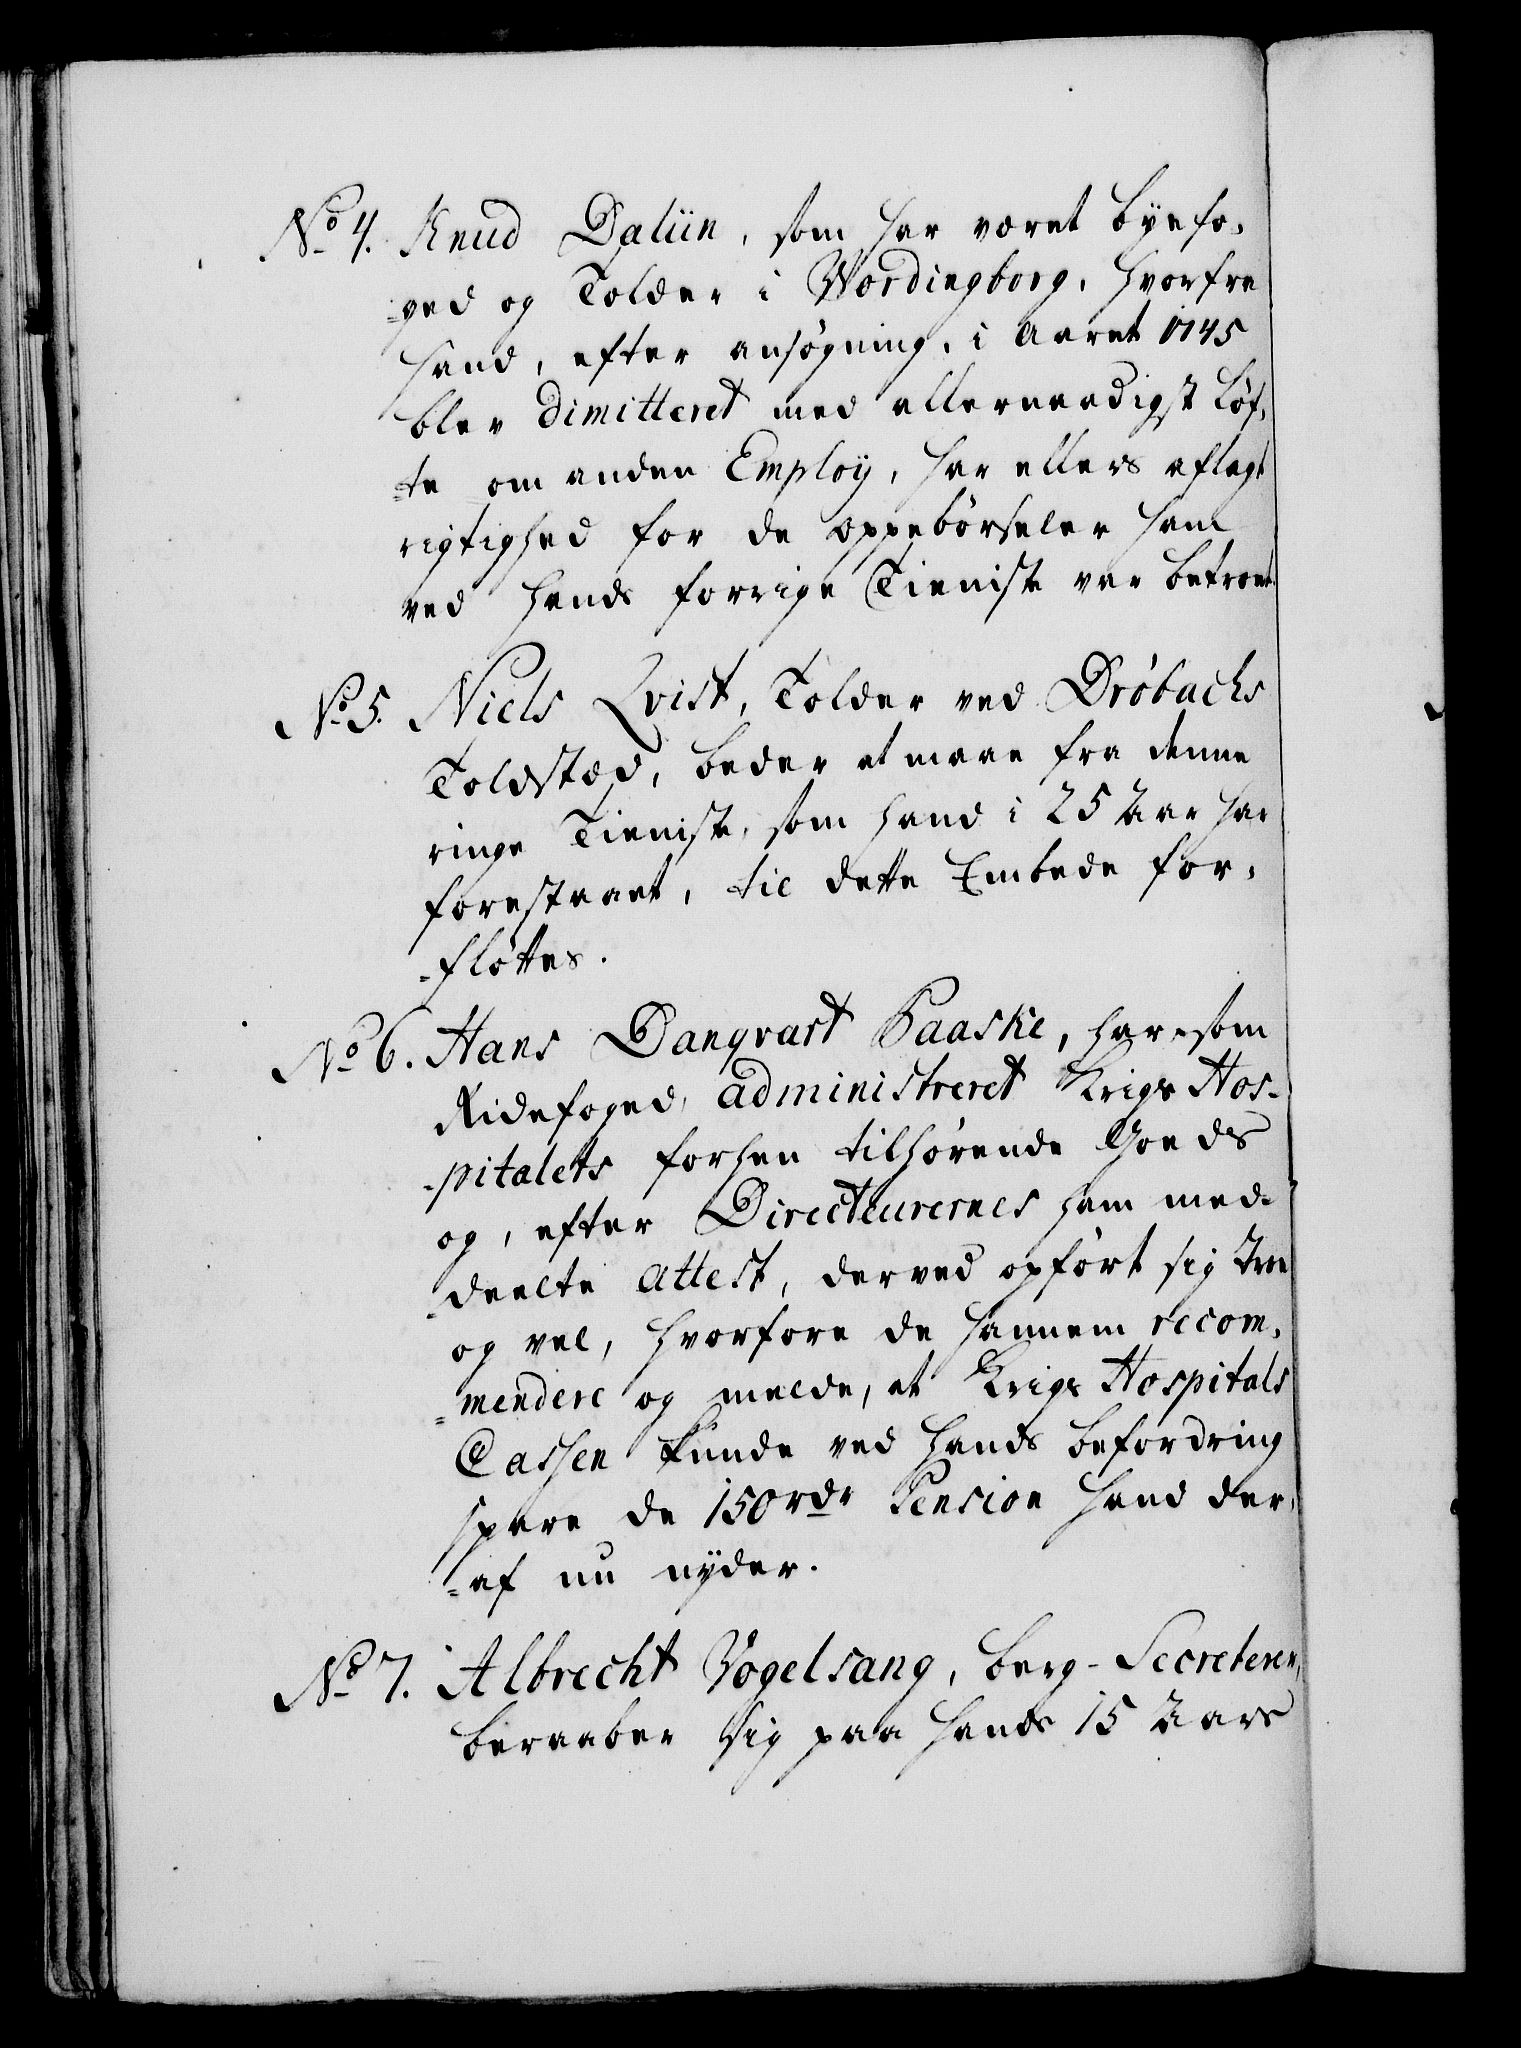 No 4. Knud Daliin, som har været byefo-
-ged og Tolder i Wordingborg, hvorfra
hand, efter ansøgning, i Aaret 1745
blev dimitteret med allernaadigst Løf-
-te om anden Employ, har ellers aflagt
rigtighed for de oppebørseler ham
ved hands forrige Tieniste var betroet
No 5. Niels Qvist, Tolder ved Drøbachs
Toldsted, beder at maae fra denne
ringe Tieniste, som hand i 25 Aar har
forestaaet, til dette Embede for-
-fløttes.
No 6. Hans Danqvart Paaske, har som
Ridefoged administreret Krigs Hos-
-pitalets forhen tilhørende Goeds
og, efter Directeurernes ham med-
-deelte attest, derved opført sig troe
og vel, hvorfore de hannem recom-
-mendere og melde, at Krigs Hospitals
Cassen kunde ved hands befordring
spare de 150 rdr Pension hand der-
-af nu nyder.
No 7. Albrecht Vogelsang, berg-Secreterer,
beraaber sig paa hands 15 Aars